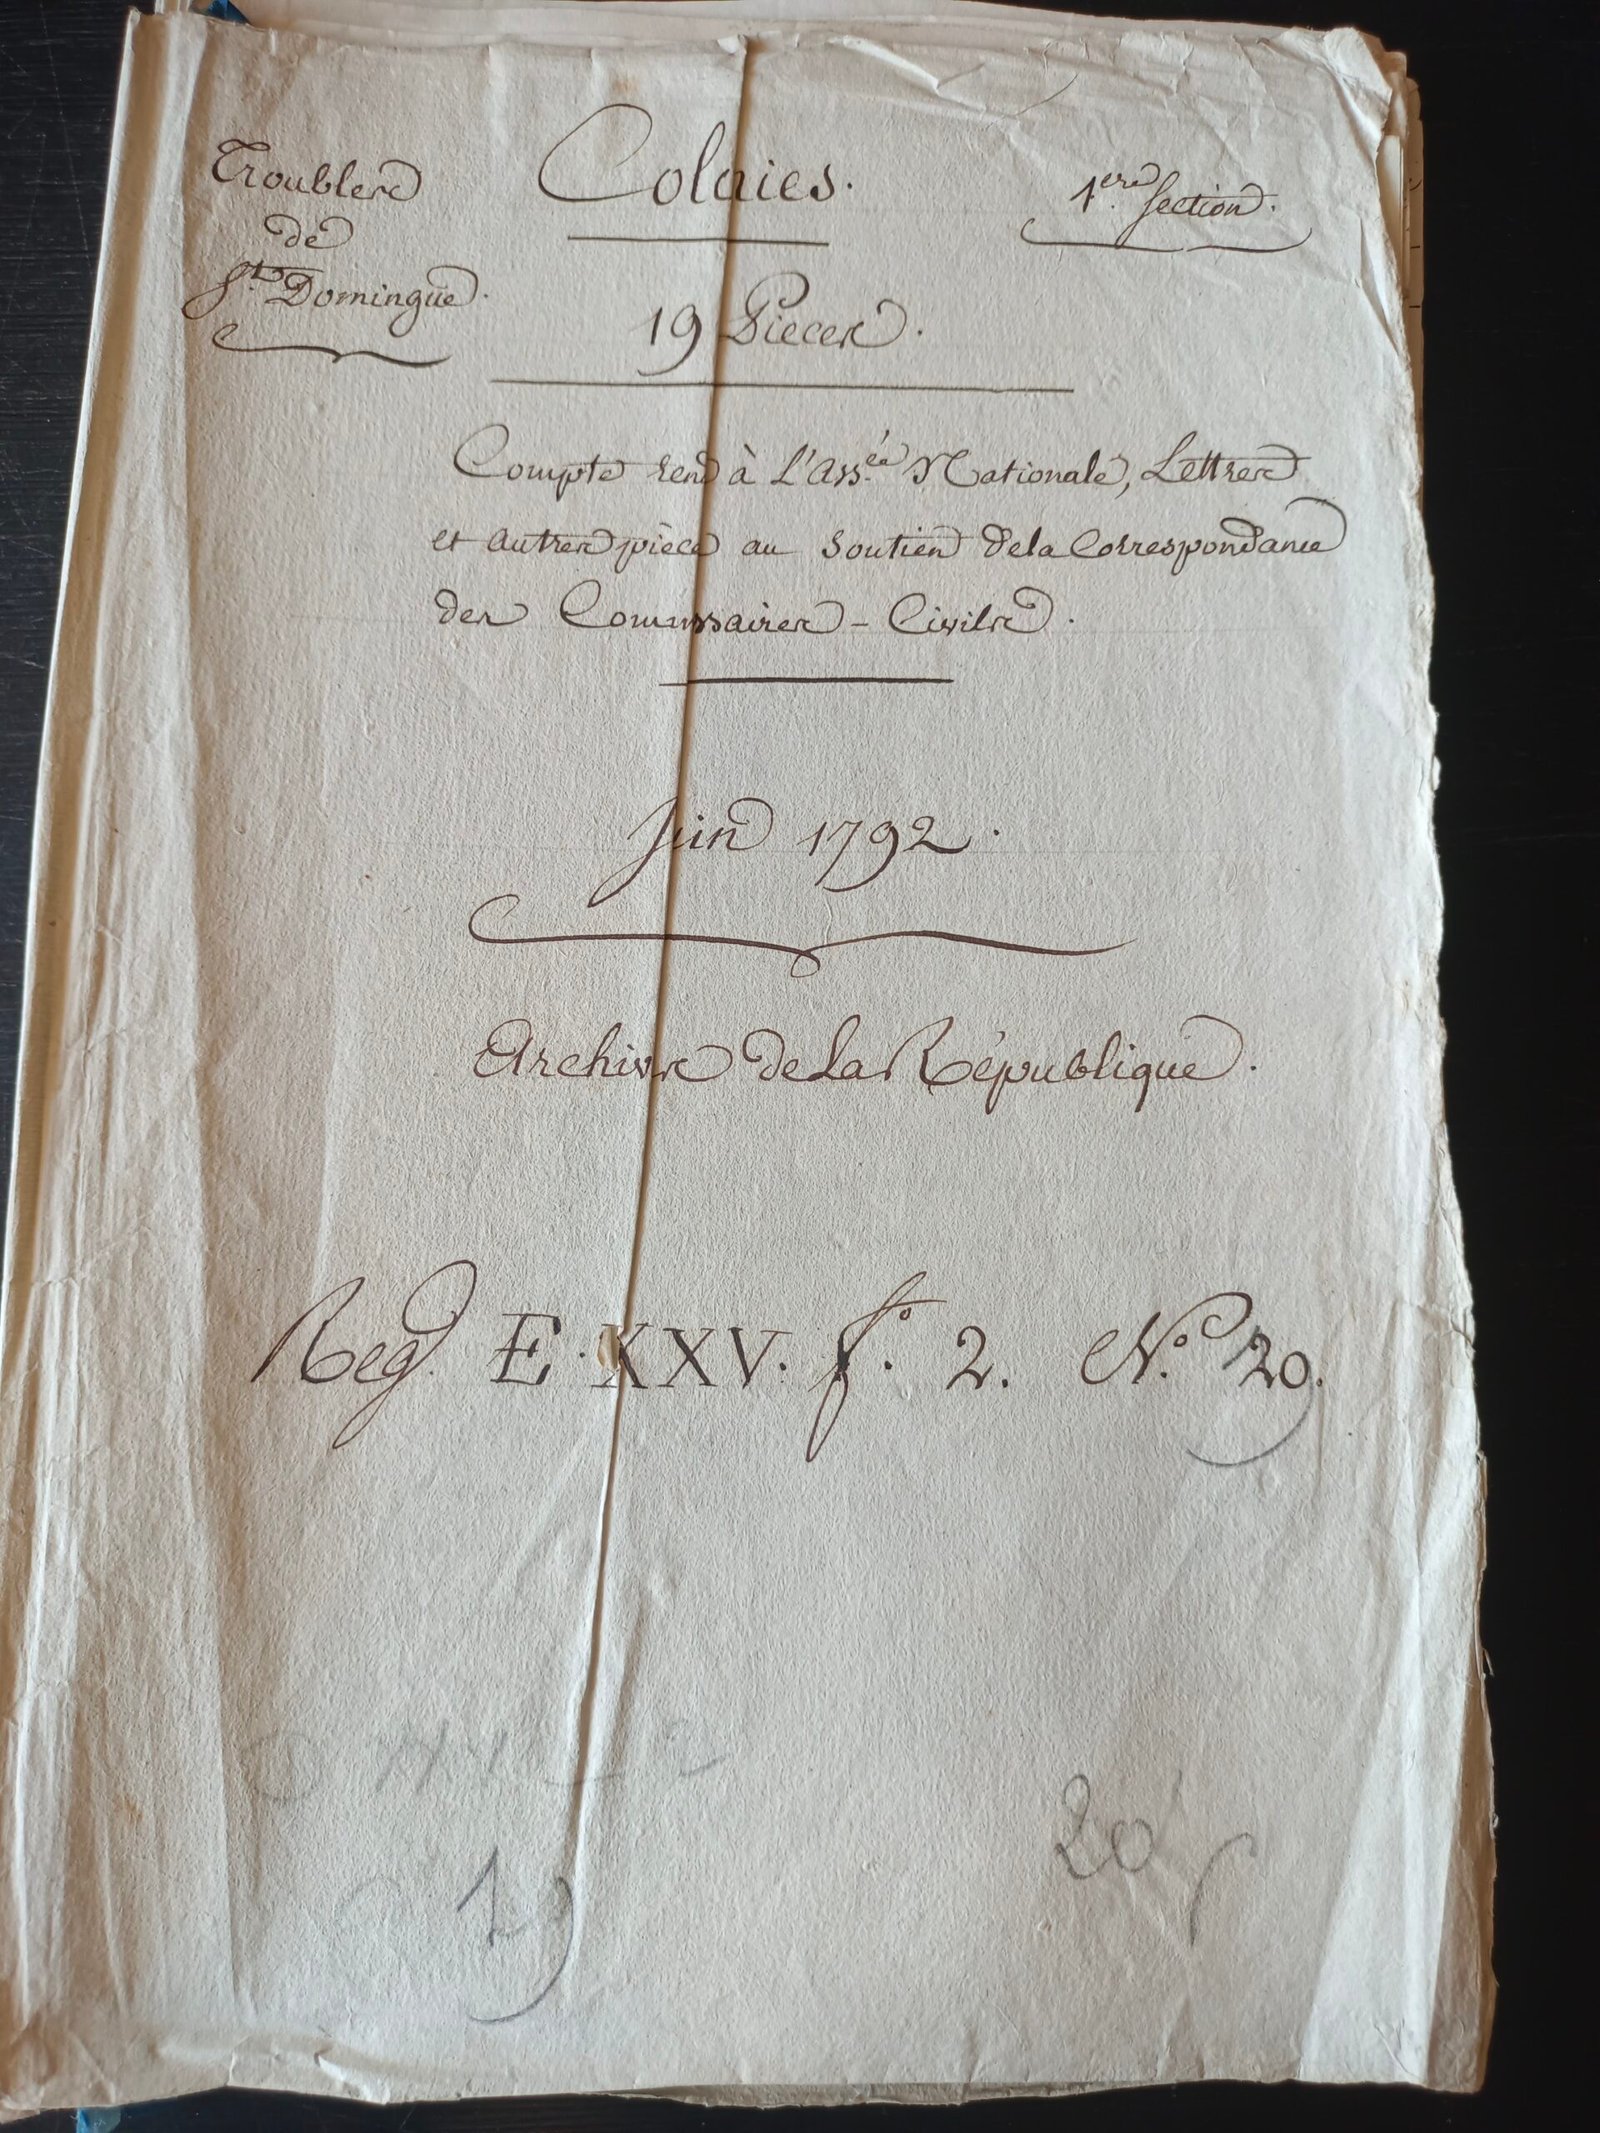 Troubles
de
St. Domingue.
Colonies.
1ere. Section.
19 Pieces.
Compte rend à L'Assée. Nationale, Lettres
et autres pièces au soutien de la Correspondance
des Commissaires - Civils.
Juin 1792.
Archives de La République.
Reg. E. XXV. fo. 2. No. 20.
XXV 2
20
1